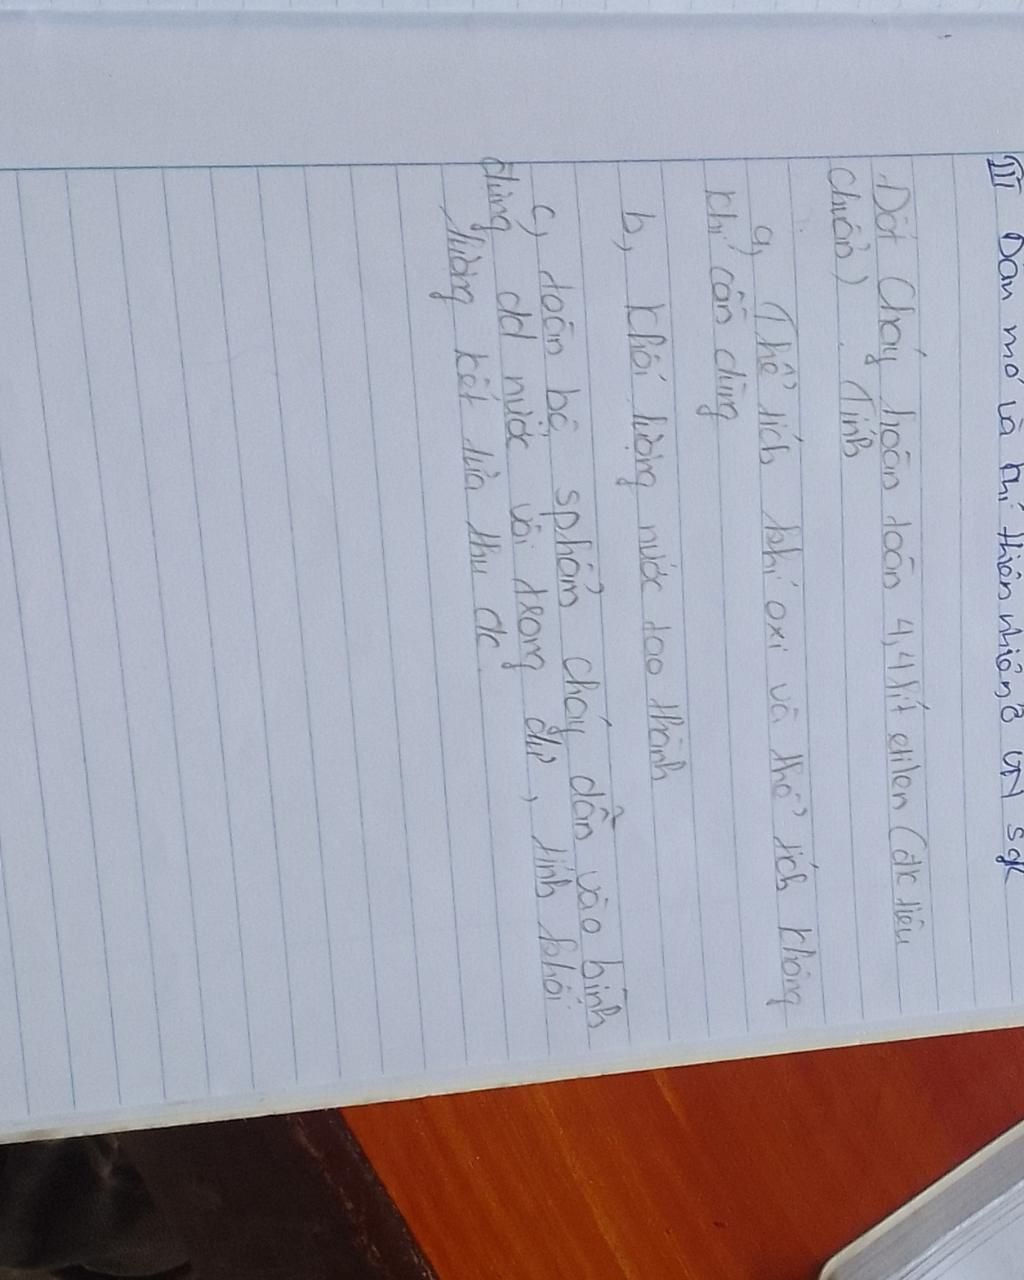 III Dầu mỏ và khí thiên nhiên ở VN sgk
Đốt Cháy hoàn toàn 4,4 lít etilen (đk tiêu
chuẩn) . Tính
a, Thể tích khí oxi và thể tích không
khí cần dùng
b, Khối lượng nước tạo thành
c, toàn bộ sphẩm cháy dẫn vào bình
đựng dd nước vôi trong dư, tính khối
lượng kết tủa thu đc.